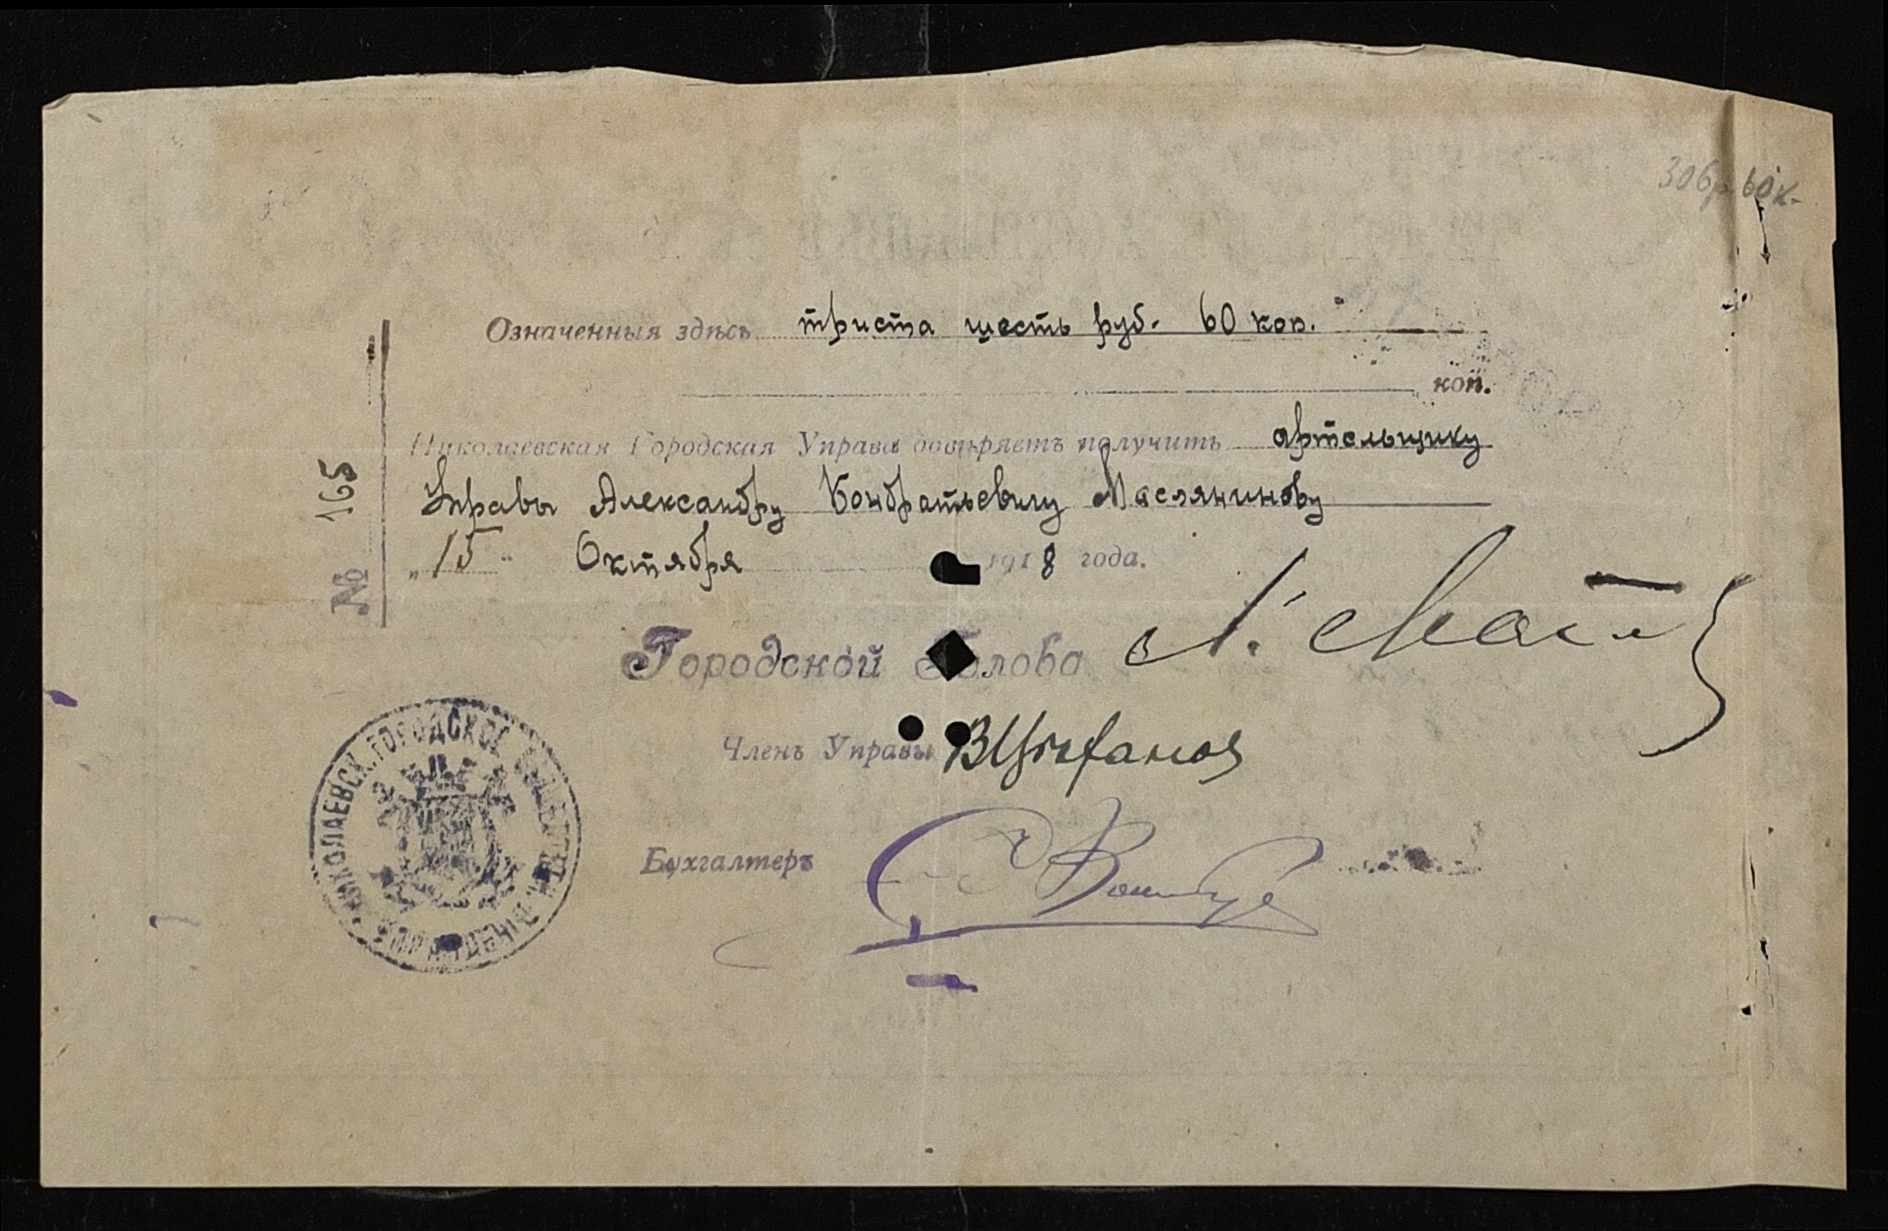 306р. 60к.
Означенныя здѣсь триста шесть руб. 60 коп.
коп.
Николаевская Городская Управа довѣряетъ получить артельщику
Управы Александру Кондратьевичу Маслянинову
„15" Октября 1918 года.
№ 165
Городской Голова
Членъ Управы
Бухгалтеръ
НИКОЛАЕВСК. ГОРОДСКОЕ